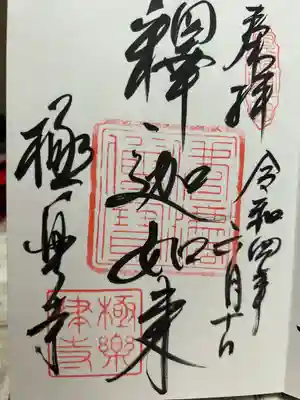 奉拝
令和四年二月十日
釋迦如来
極楽寺
極樂律寺